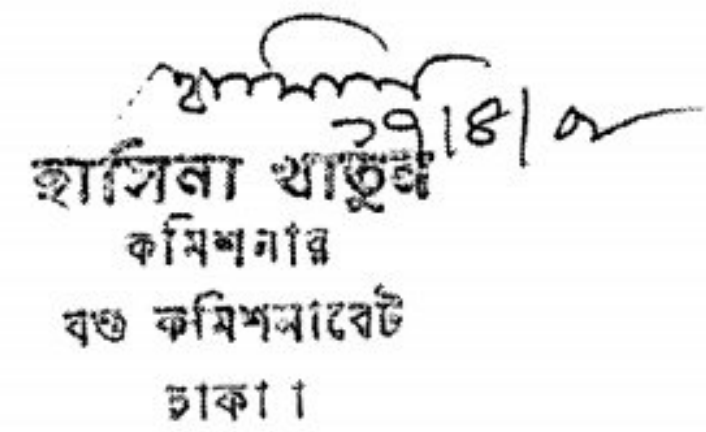 ২৭/৪/০৮
হাসিনা খাতুন
কমিশনার
বন্ড কমিশনারেট
ঢাকা।